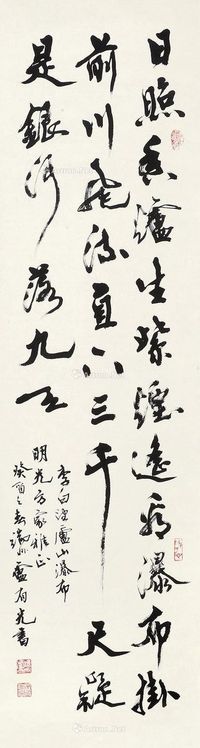 日照香爐生紫煙遙看瀑布掛
前川飛流直下三千尺疑
是銀河落九天
李白望廬山瀑布
明光方家雅正
癸酉之春 盧有光書